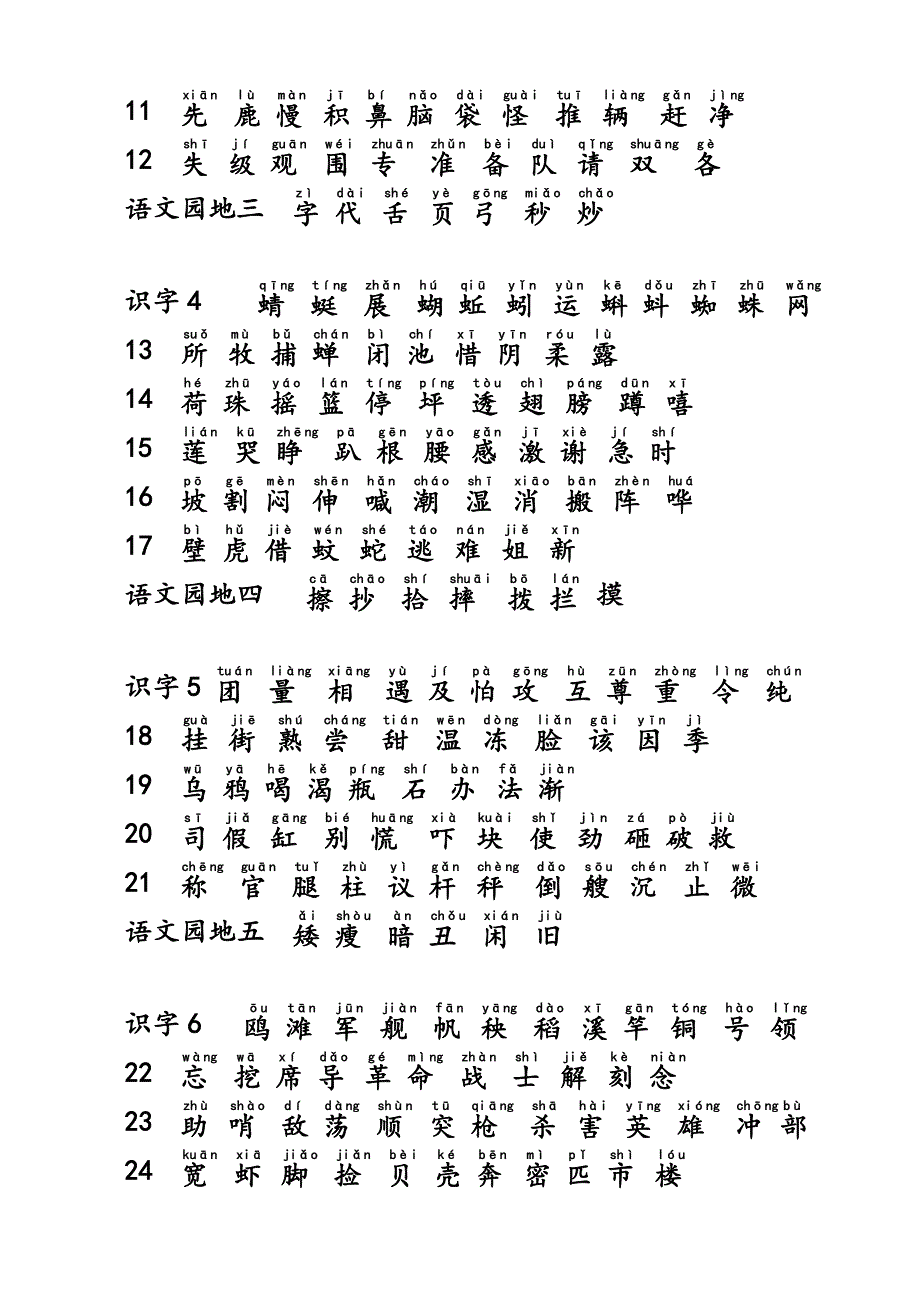 xiān lù màn jī bí nǎo dài guài tuī liàng gǎn jìng
11 先 鹿 慢 积 鼻 脑 袋 怪 推 辆 赶 净
shī jí guān wéi zhuān zhǔn bèi duì qǐng shuāng gè
12 失 级 观 围 专 准 备 队 请 双 各
zì dài shé yè gōng miǎo chǎo
语文园地三 字 代 舌 页 弓 秒 炒
qīng tíng zhǎn hú qiū yǐn yùn kē dǒu zhī zhū wǎng
识字4 蜻 蜓 展 蝴 蚯 蚓 运 蝌 蚪 蜘 蛛 网
suǒ mù bǔ chán bì chí xī yīn róu lù
13 所 牧 捕 蝉 闭 池 惜 阴 柔 露
hé zhū yáo lán tíng píng tòu chì páng dūn xī
14 荷 珠 摇 篮 停 坪 透 翅 膀 蹲 嘻
lián kū zhēng pā gēn yāo gǎn jī xiè jí shí
15 莲 哭 睁 趴 根 腰 感 激 谢 急 时
pō gē mèn shēn hǎn cháo shī xiāo bān zhèn huá
16 坡 割 闷 伸 喊 潮 湿 消 搬 阵 哗
bì hǔ jiè wén shé táo nán jiě xīn
17 壁 虎 借 蚊 蛇 逃 难 姐 新
cā chāo shí shuāi bō lán
语文园地四 擦 抄 拾 摔 拨 拦 摸
tuán liàng xiāng yù jí pà gōng hù zūn zhòng lìng chún
识字5 团 量 相 遇 及 怕 攻 互 尊 重 令 纯
guà jiē shú cháng tián wēn dòng liǎn gāi yīn jì
18 挂 街 熟 尝 甜 温 冻 脸 该 因 季
wū yā hē kě píng shí bàn fǎ jiàn
19 乌 鸦 喝 渴 瓶 石 办 法 渐
sī jiǎ gāng bié huāng xià kuài shǐ jìn zá pò jiù
20 司 假 缸 别 慌 吓 块 使 劲 砸 破 救
chēng guān tuǐ zhù yì gǎn chèng dǎo sōu chén zhǐ wēi
21 称 官 腿 柱 议 杆 秤 倒 艘 沉 止 微
ǎi shòu àn chǒu xián jiù
语文园地五 矮 瘦 暗 丑 闲 旧
ōu tān jūn jiàn fān yāng dào xī gān tóng hào lǐng
识字6 鸥 滩 军 舰 帆 秧 稻 溪 竿 铜 号 领
wàng wā xí dǎo gé mìng zhàn shì jiě kè niàn
22 忘 挖 席 导 革 命 战 士 解 刻 念
zhù shào dí dàng shùn tū qiāng shā hài yīng xióng chōng bù
23 助 哨 敌 荡 顺 突 枪 杀 害 英 雄 冲 部
kuān xiā jiǎo jiǎn bèi ké bēn mì pǐ shì lóu
24 宽 虾 脚 捡 贝 壳 奔 密 匹 市 楼